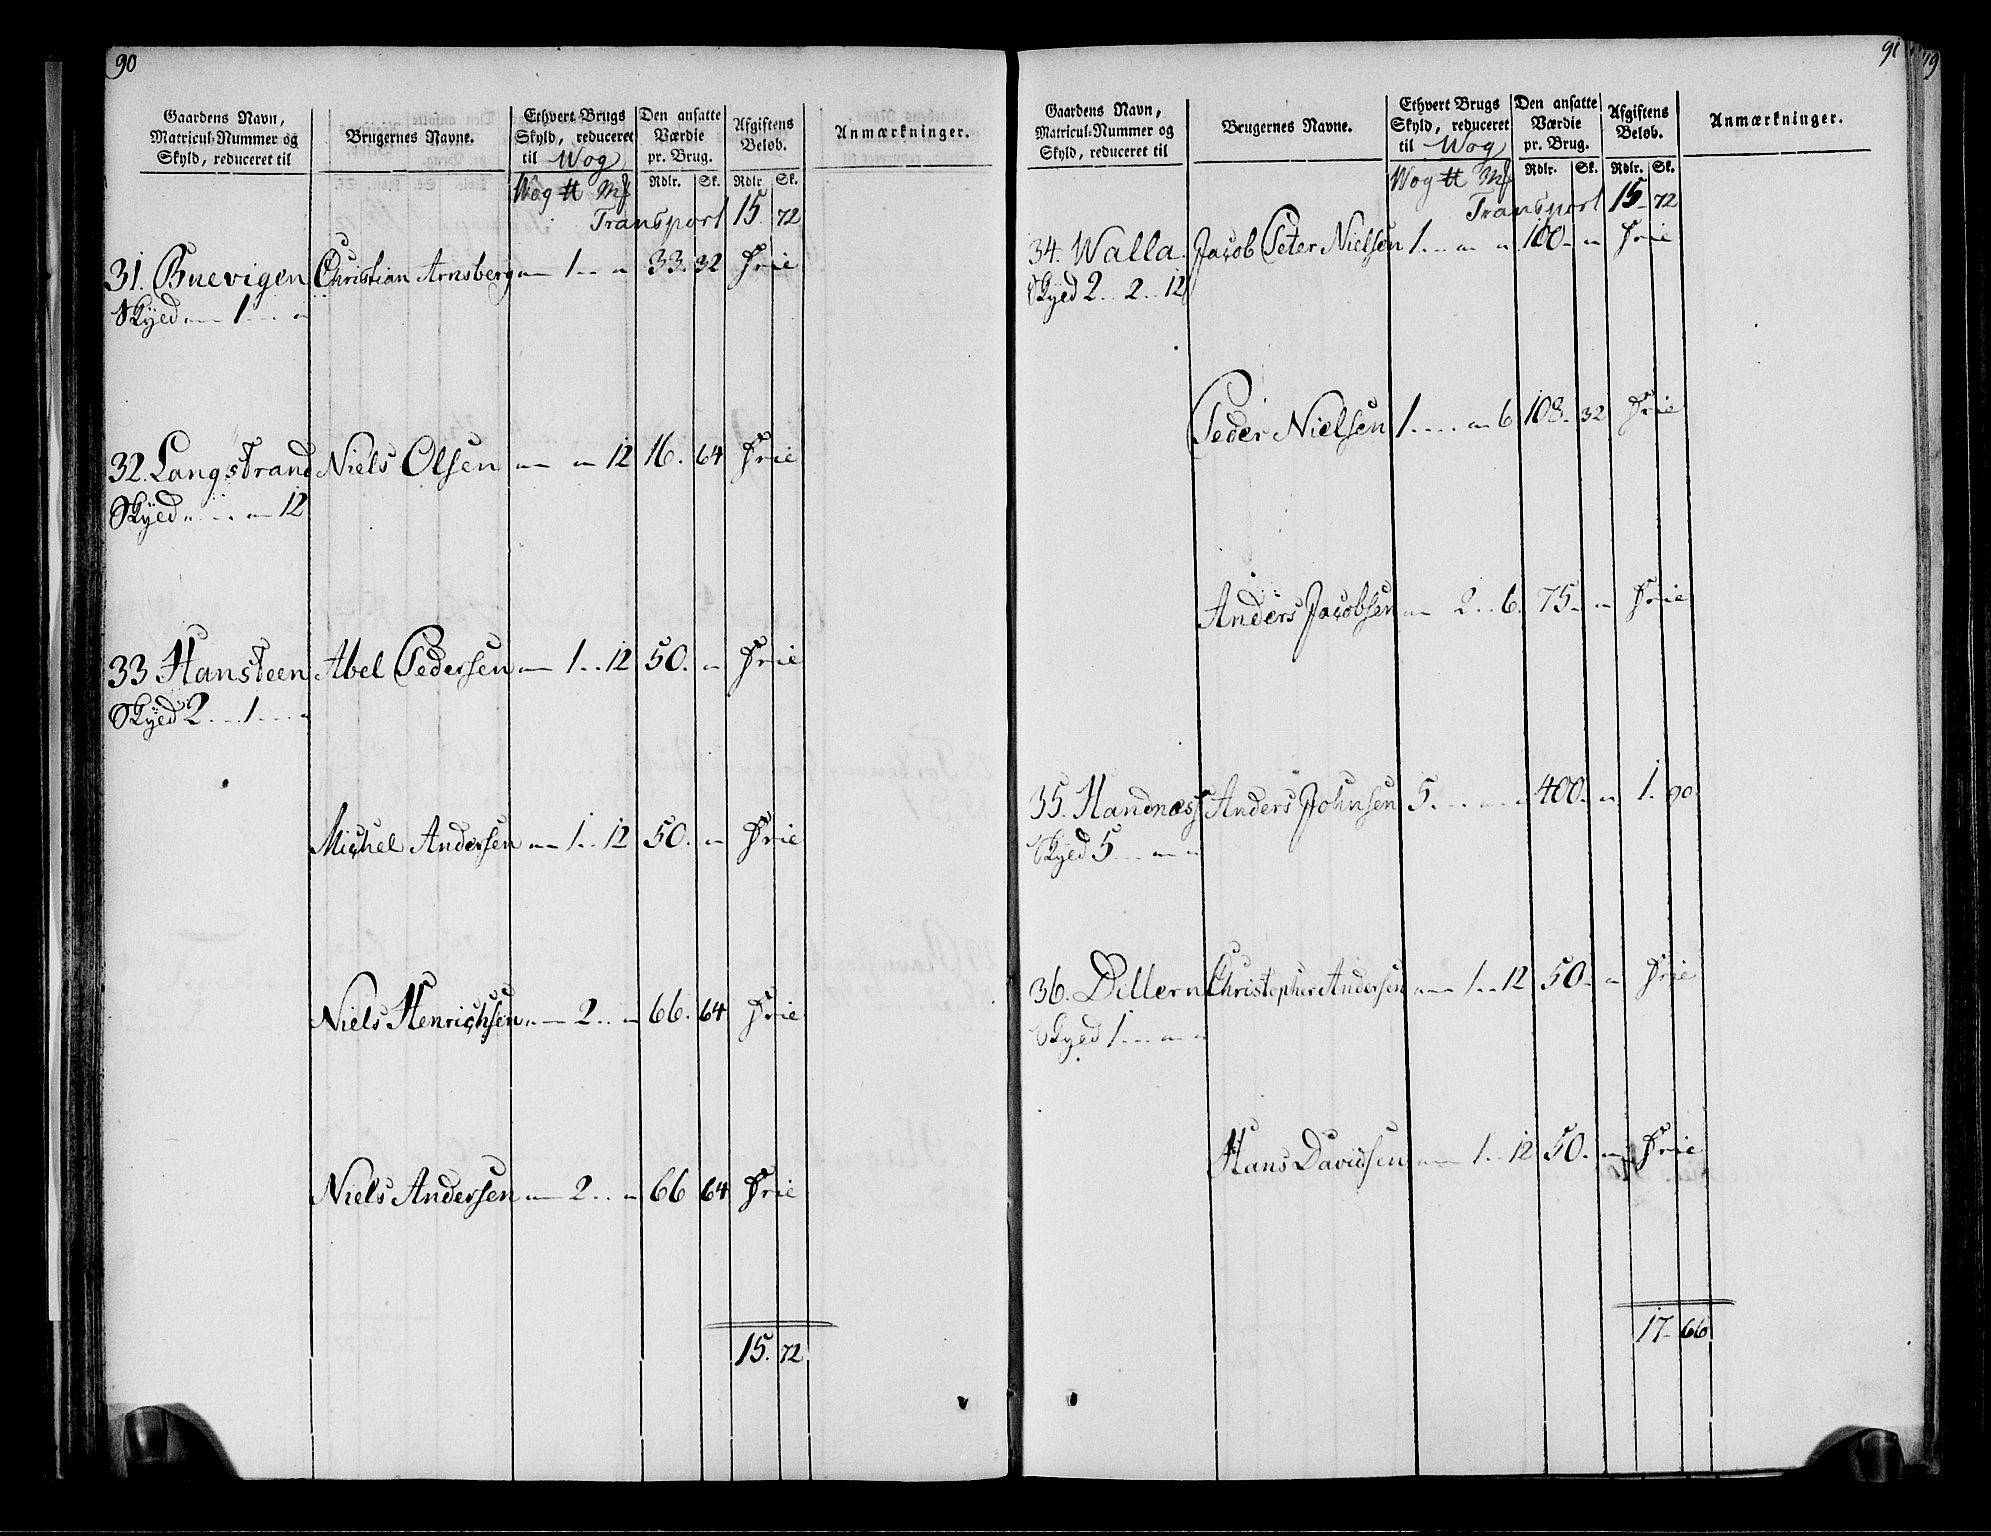 90
Gaardens Navn, Matricul-Nummer og Skyld, reduceret til | Brugernes Navne. | Ethvert Brugs Skyld, reduceret til Wog | Den ansatte Værdie pr. Brug. | Afgiftens Beløb. | Anmærkninger.
Wog ℔ Mf | Rdlr. | Sk. | Rdlr. | Sk.
Transport 15. 72
31. Buevigen Christian Arnsberg „ 1 „ 33. 32 Frie
Skyed „ 1 „
32. Langstrand Niels Olsen „ „ 12 16. 64 Frie
Skyed „ „ 12
33 Hansteen Abel Pedersen „ 1 12 50. „ Frie
Skyed 2 1 „
Michel Andersen „ 1 12 50. „ Frie
Niels Henrichsen „ 2 „ 66. 64 Frie
Niels Andersen „ 2 „ 66 64 Frie
15. 72
91
Gaardens Navn, Matricul-Nummer og Skyld, reduceret til | Brugernes Navne. | Ethvert Brugs Skyld, reduceret til Wog | Den ansatte Værdie pr. Brug. | Afgiftens Beløb. | Anmærkninger.
Wog ℔ Mf | Rdlr. | Sk. | Rdlr. | Sk.
Transport 15 72
34. Walla. Jacob Peter Nielsen 1 „ „ 100 „ Frie
Skyed 2 2 12
Peder Nielsen 1 „ 6 108. 32 Frie
Anders Jacobsen „ 2 6. 75 „ Frie
35. Handnæss Anders Johnsen 5 „ „ 400 „ 1. 90
Skyed 5 „ „
36. Dillern Christopher Andersen „ 1 12 50 „ Frie
Skyed 1 „ „
Hans Davidsen „ 1 12 50. „ Frie
17 66